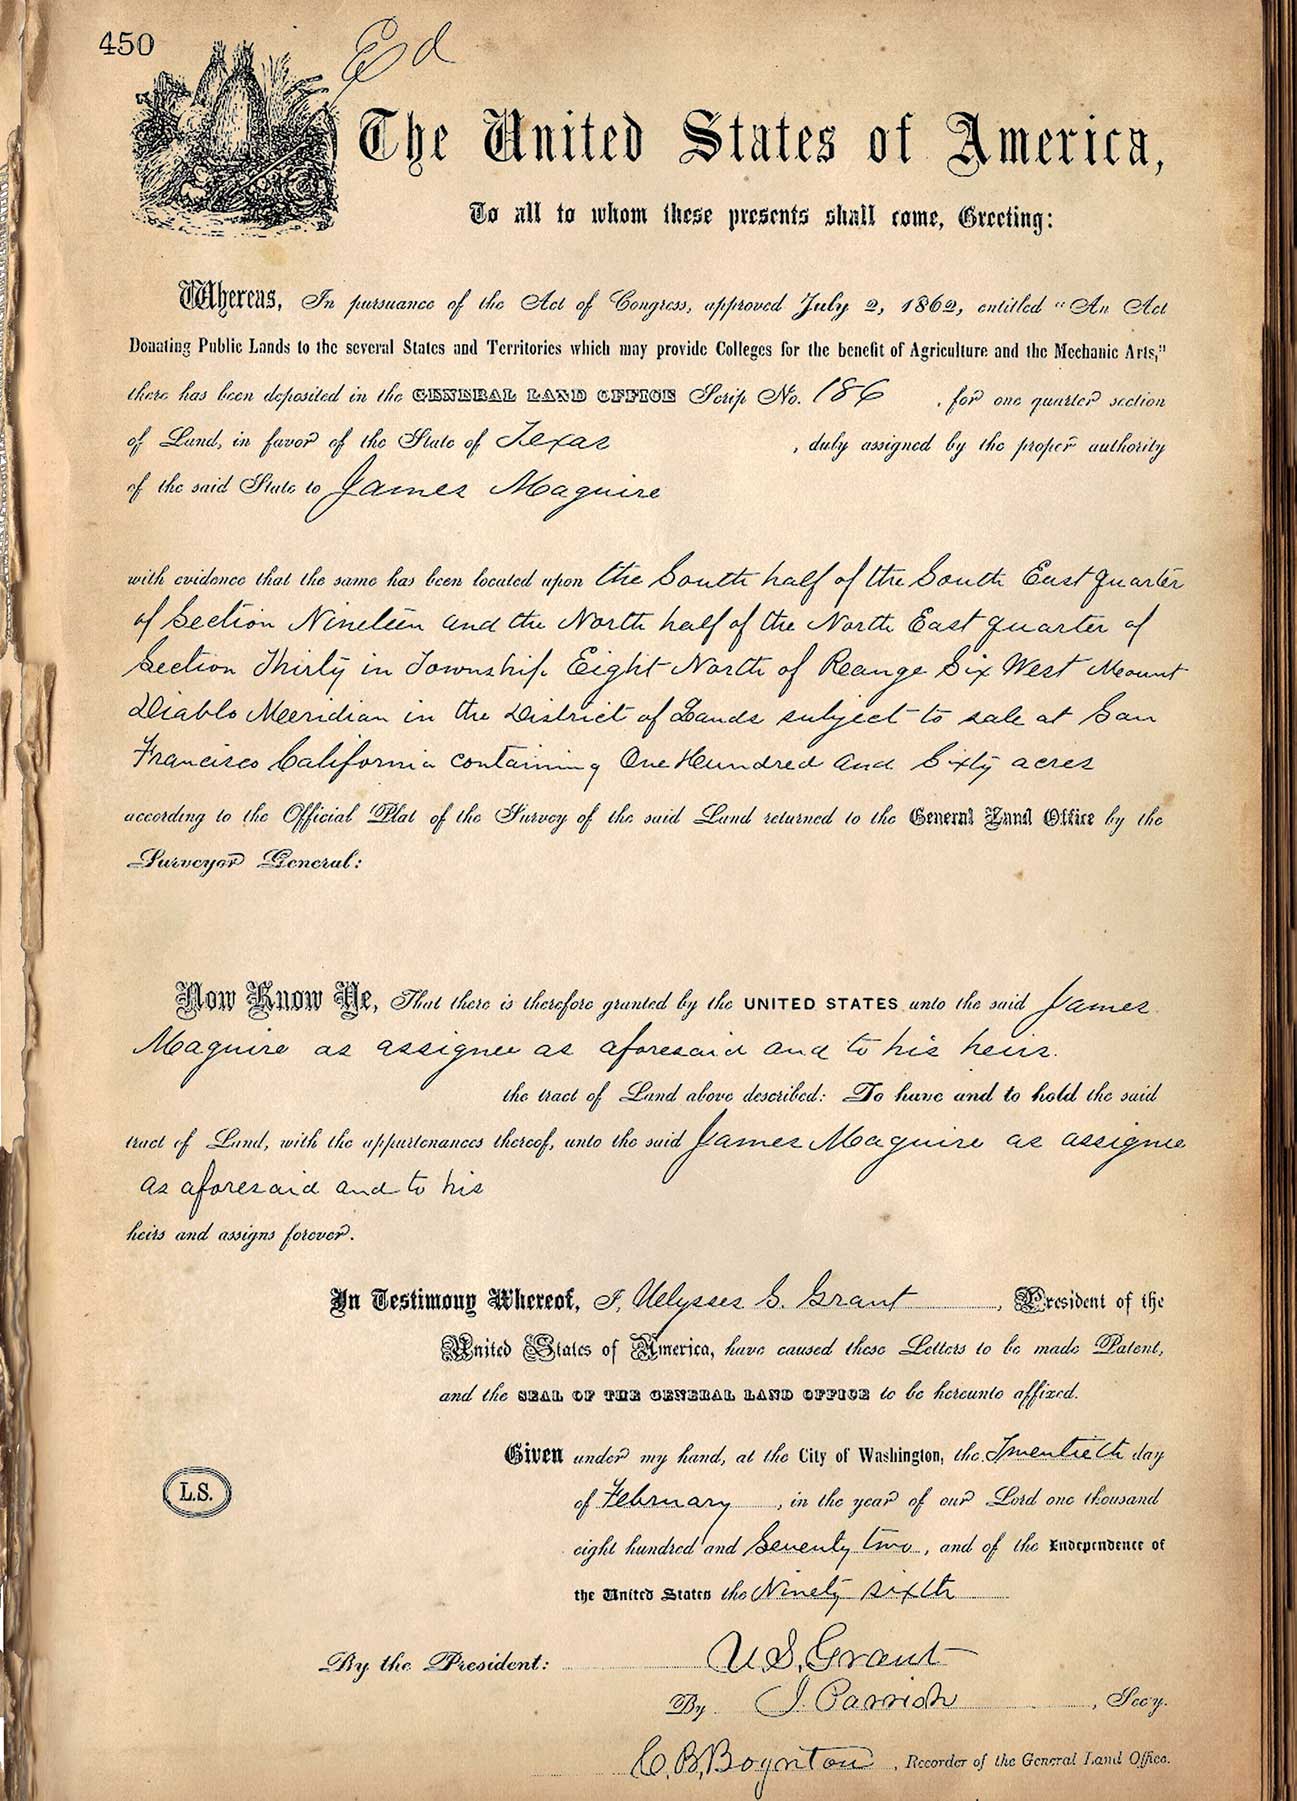 450
Ed
The United States of America,
To all to whom these presents shall come, Greeting:
Whereas, In pursuance of the Act of Congress, approved July 2, 1862, entitled "An Act
Donating Public Lands to the several States and Territories which may provide Colleges for the benefit of Agriculture and the Mechanic Arts,"
there has been deposited in the GENERAL LAND OFFICE Scrip No. 186 , for one quarter section
of Land, in favor of the State of Texas , duly assigned by the proper authority
of the said State to James Maguire
with evidence that the same has been located upon the South half of the South East quarter
of Section Nineteen and the North half of the North East quarter of
Section Thirty in Township Eight North of Range Six West Mount
Diablo Meridian in the District of Lands subject to sale at San
Francisco California containing One Hundred and Sixty acres
according to the Official Plat of the Survey of the said Land returned to the General Land Office by the
Surveyor General:
Now Know Ye, That there is therefore granted by the UNITED STATES unto the said James
Maguire as assignee as aforesaid and to his heirs.
the tract of Land above described: To have and to hold the said
tract of Land, with the appurtenances thereof, unto the said James Maguire as assignee
as aforesaid and to his
heirs and assigns forever.
In Testimony Whereof, I, Ulysses S. Grant , President of the
United States of America, have caused these Letters to be made Patent,
and the SEAL OF THE GENERAL LAND OFFICE to be hereunto affixed.
Given under my hand, at the City of Washington, the Twentieth day
L.S.
of February , in the year of our Lord one thousand
eight hundred and Seventy two , and of the Independence of
the United States the Ninety sixth
By the President: U.S. Grant
By J. Parrish , Secy.
C. B. Boynton , Recorder of the General Land Office.